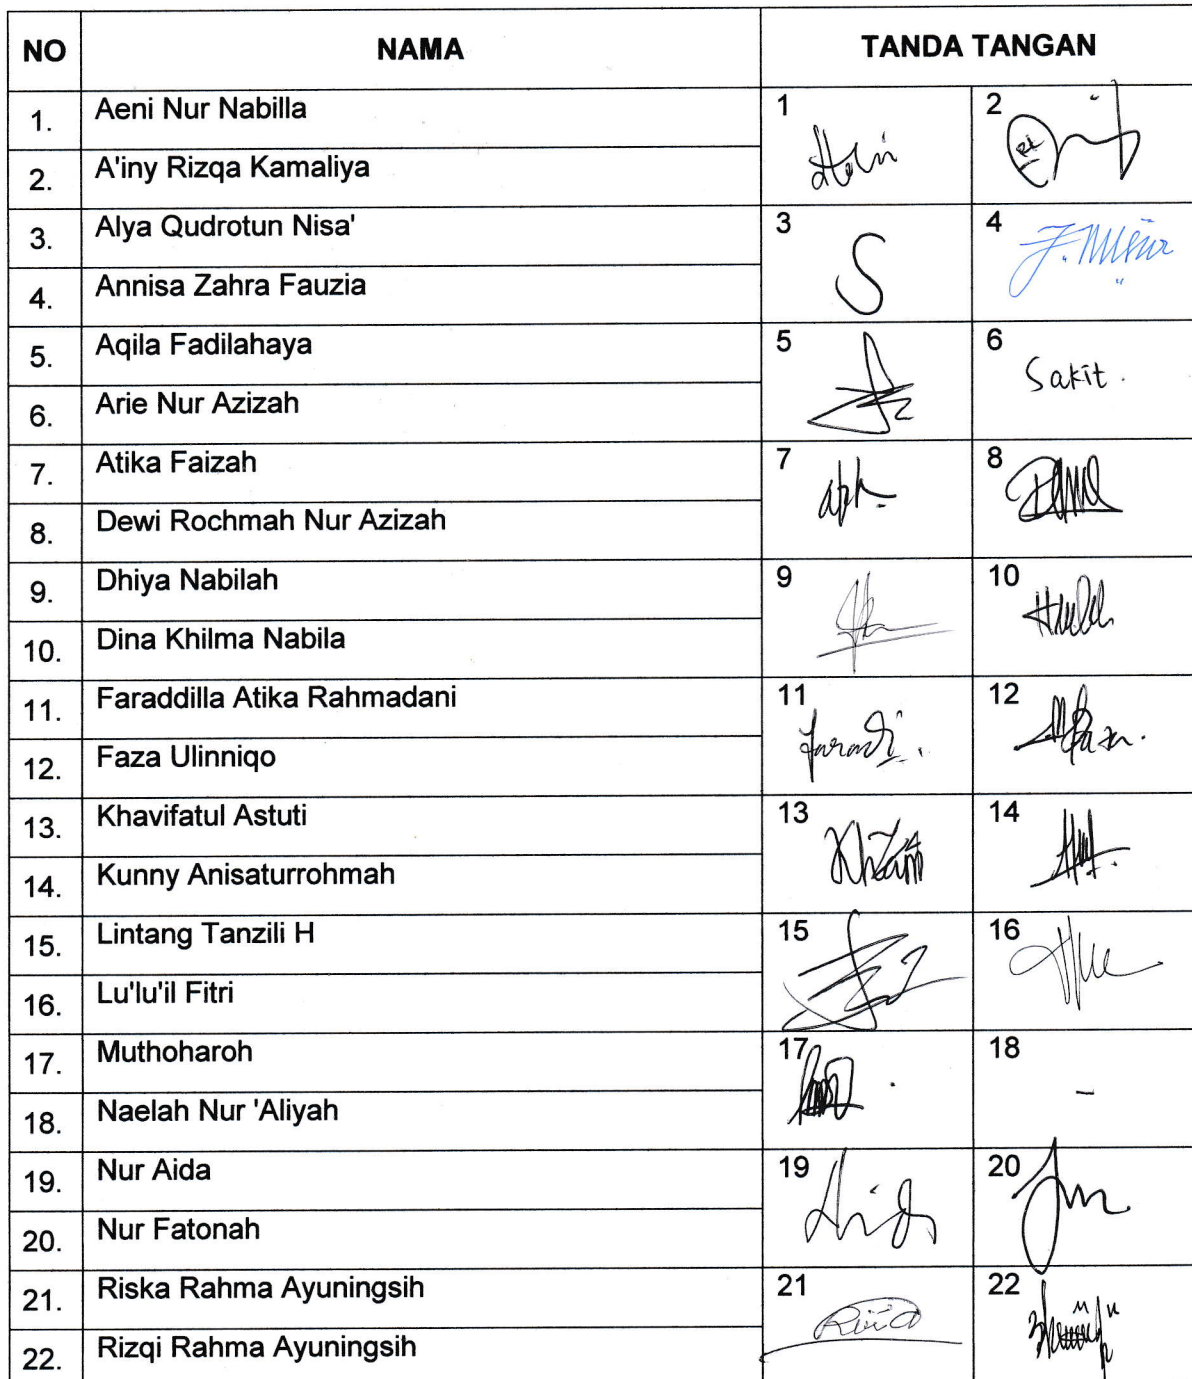 NO NAMA TANDA TANGAN
1. Aeni Nur Nabilla 1 2
2. A'iny Rizqa Kamaliya
3. Alya Qudrotun Nisa' 3 4
4. Annisa Zahra Fauzia
5. Aqila Fadilahaya 5 6 Sakit.
6. Arie Nur Azizah
7. Atika Faizah 7 8
8. Dewi Rochmah Nur Azizah
9. Dhiya Nabilah 9 10
10. Dina Khilma Nabila
11. Faraddilla Atika Rahmadani 11 12
12. Faza Ulinniqo
13. Khavifatul Astuti 13 14
14. Kunny Anisaturrohmah
15. Lintang Tanzili H 15 16
16. Lu'lu'il Fitri
17. Muthoharoh 17 18 -
18. Naelah Nur 'Aliyah
19. Nur Aida 19 20
20. Nur Fatonah
21. Riska Rahma Ayuningsih 21 22
22. Rizqi Rahma Ayuningsih